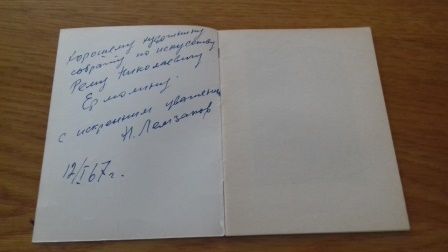 Хорошему художнику
собрату по искусству
Рему Николаевичу
Ермолину.
с искренним уважением
Н. Лемзаков
12/I 67 г.